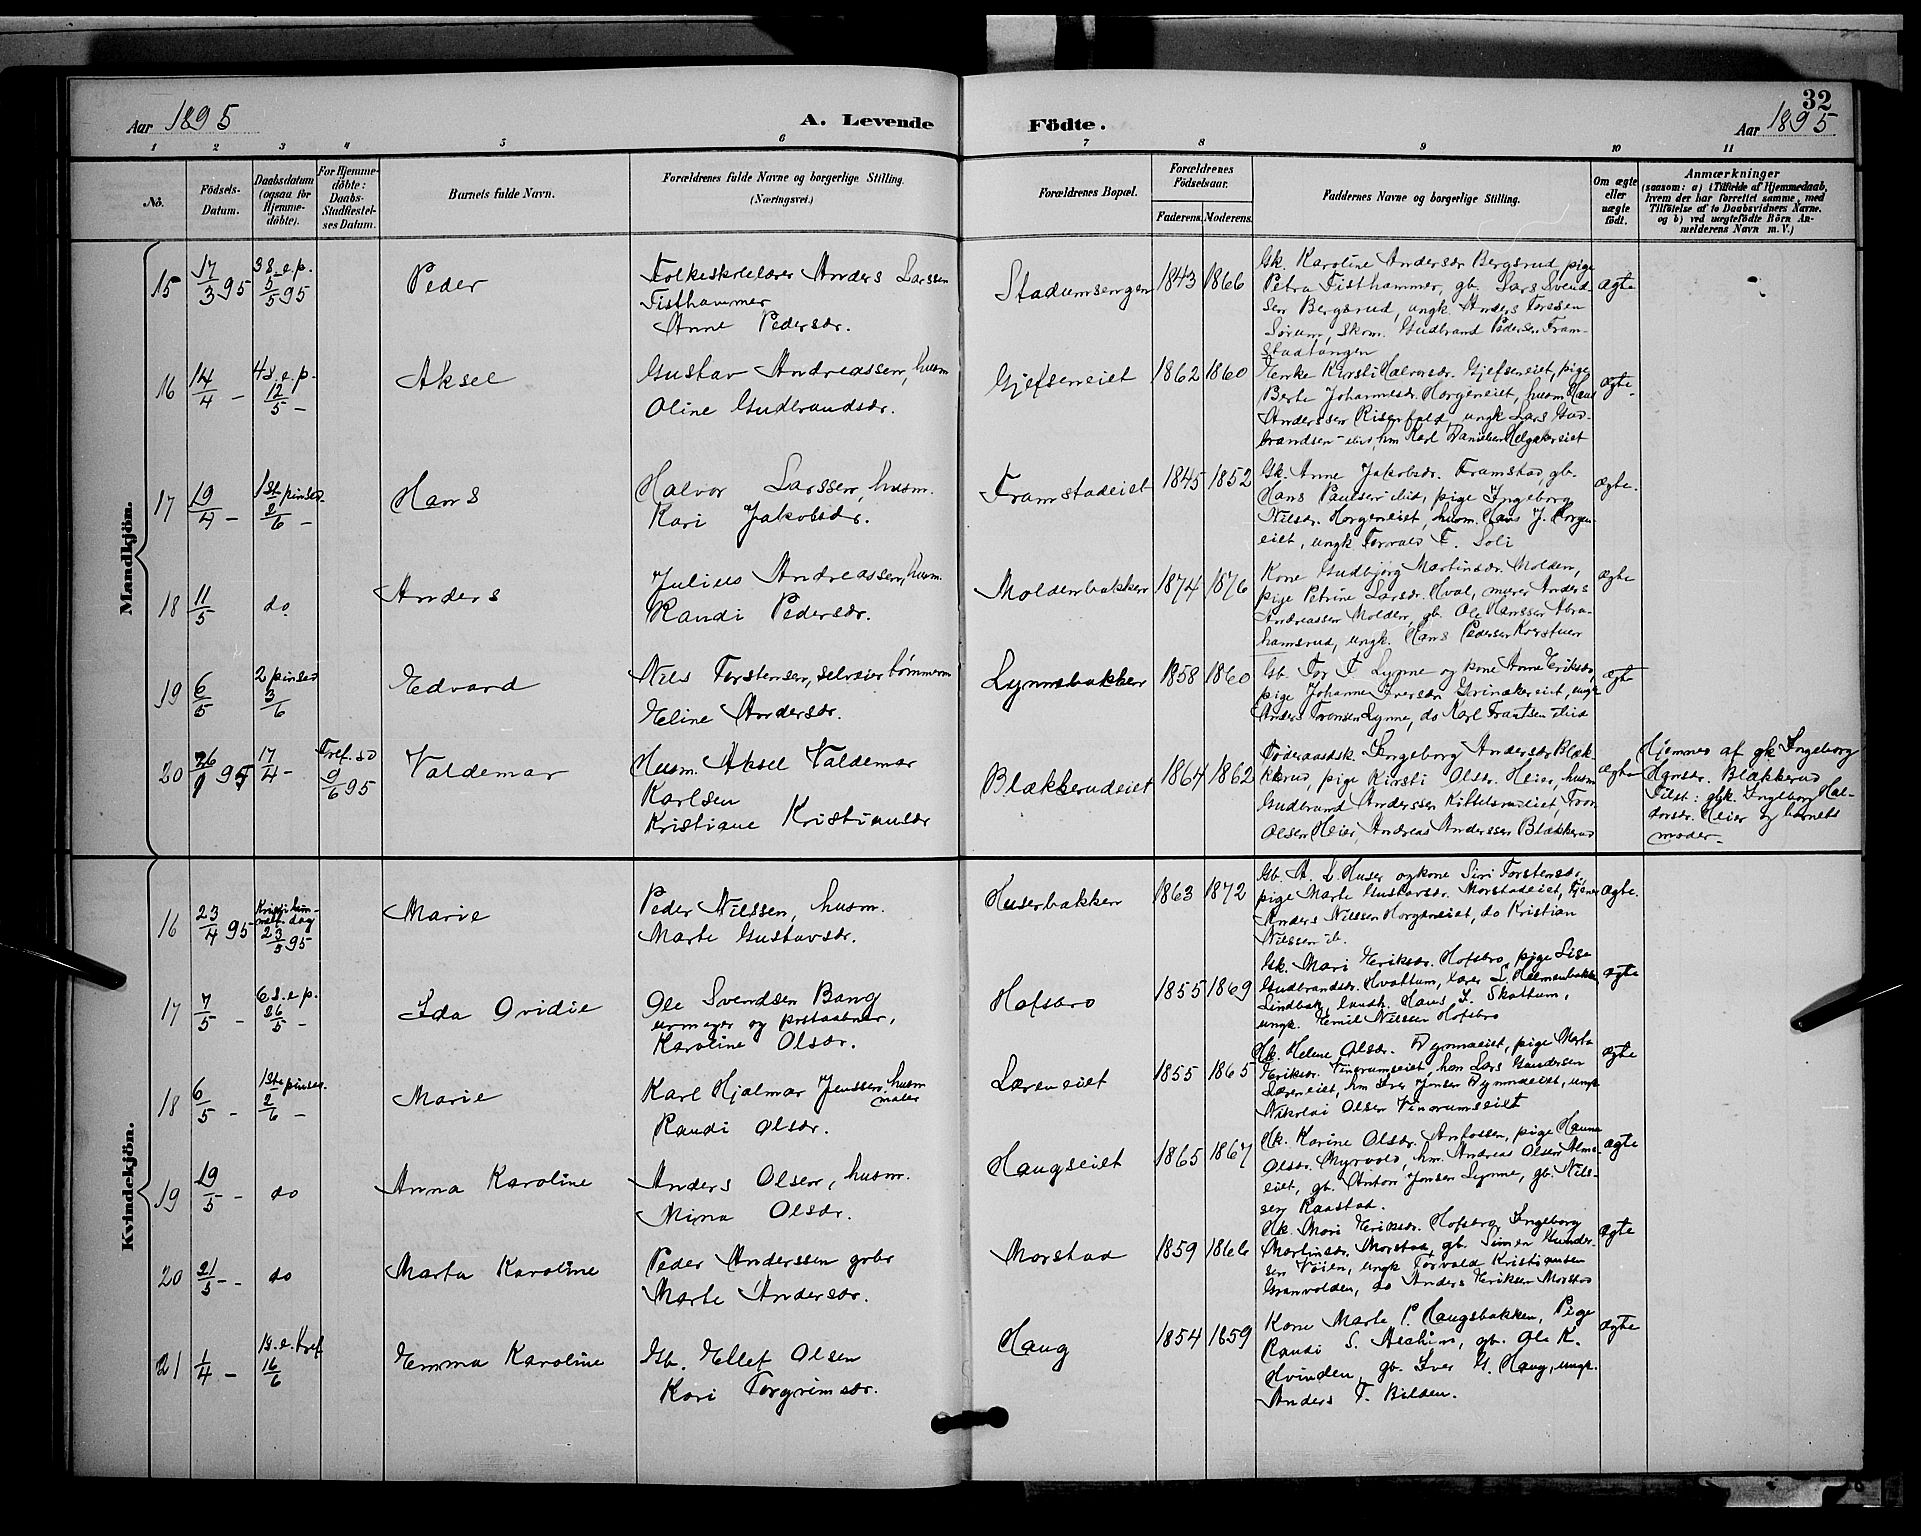 32
Aar 1895
A. Levende
Födte.
Aar 1895
1 2 3 4 5 6 7 8 9 10 11
No.
Födsels-
Datum.
Daabsdatum
(ogsaa for
Hjemme-
döbte).
For Hjemme-
döbte:
Daabs-
Stadfæstel-
ses Datum.
Barnets fulde Navn.
Forældrenes fulde Navne og borgerlige Stilling.
(Næringsvei.)
Forældrenes Bopæl.
Forældrenes
Födselsaar.
Faderens. Moderens.
Faddernes Navne og borgerlige Stilling.
Om ægte
eller
uægte
födt.
Anmærkninger
(saasom: a) i Tilfælde af Hjemmedaab,
hvem der har forrettet samme, med
Tilföielse af to Daabsvidners Navne.
og b) ved uægtefödte Börn An-
melderens Navn m. V.)
Mandkjön.
15
17/3 95
3 S. e. p.
5/5 95
Peder
Folkeskolelærer Anders Larssen
Fisthammer
Anne Pedersdr.
Stadumsengen
1843 1866
Gk. Karoline Andersdr Bergsrud, pige
Petra Fisthammer, gb. Lars Svend-
sen Bergsrud, ungk Anders Torssen
Sörum, skom. Gudbrand Pedersen Fram-
stadtangen
ægte
16
14/4 -
4 s. e. p.
12/5 -
Aksel
Gustav Andreassen, husm
Oline Gudbrandsdr.
Gjefseneiet
1862 1860
Enke Kirsti Halvorsdr. Gjefseneiet, pige
Berte Johannesdr. Horgeneiet, husm Hans
Anderssen Risenfald, ungk Lars Gud-
brandsen ibid, hm Karl Danielsen Helgakereiet
ægte
17
19/4 -
1st pinsed
2/6 -
Hans
Halvor Larssen, husm.
Kari Jakobsdr.
Framstadeiet
1845 1852
Gk. Anne Jakobsdr. Framstad, gb.
Hans Paulsen ibid, pige Ingeborg
Nilsdr. Horgeneiet, husm. Hans J. Horgen-
eiet, ungk Torvald F. Soli
ægte.
18
11/5
do
Anders
Julius Andreassen, husm.
Randi Pedersdr.
Moldenbakken
1874 1876
Kone Gudbjörg Martinsdr. Molden,
pige Petrine Larsdr. Hval, murer Anders
Andreassen Molden, gb. Ole Hanssen Abra-
hamsrud, ungk. Hans Pedersen Korstuen
ægte
19
6/5
2 pinsed
3/6
Edvard
Nils Torstensen, selveier tömmerm
Eline Andersdr.
Lynnebakken
1858 1860
Gb. Tor T Lynne og kone Anne Eriksdr,
pige Johanne Iversdr Grinakereiet, ungk
Anders Tronsen Lynne, do Karl Frantsen ibid
ægte
20
17/4 -
Tref. sd
9/6 95
Valdemar
Husm. Aksel Valdemar
Karlsen
Kristiane Kristiansdr
Blækkerudeiet
1864 1862
Föderaadsk. Ingeborg Andersdr Blæk-
kerud, pige Kirsti Olsdr. Heier, husm
Gudbrand Anderssen Kittelsrudeiet, Tron
Olsen Heier, Andreas Anderssen Blækkerud
ægte
Hjemmed af gk Ingeborg
Blækkerud
Tilst: gk. Ingeborg Hal-
dorsdr. Heier og barnets
moder.
Kvindekjön.
16
23/4 95
Kristi him-
melf. dag
23/5 95
Marie
Peder Nilssen, husm.
Marte Gustavsdr.
Huserbakken
1863 1872
Gb. A. L Huser og kone Siri Torstensdr,
pige Marte Gustavsdr. Morstadeiet, tjener
Anders Nilssen Horgeneiet, do Kristian
Nilssen ib.
ægte.
17
7/5 -
6 s. e p.
26/5 -
Ida Ovidie
Ole Svendsen Bang
urmager og postaabner,
Karoline Olsdr.
Hofsbro
1855 1869
Gk. Mari Eriksdr. Hofsbro, pige Lise
Gudbrandsdr. Hvattum, lærer L. Helmenbakke
Lindbak, landh. Hans L. Skattum,
ungk. Emil Nilssen Hofsbro
ægte
18
6/5 -
1ste pinsed.
2/6 -
Marie
Karl Hjalmar Jenssen, husm
maler
Randi Olsdr.
Læreneiet
1855 1865
Gk. Helene Olsdr. Dynnaeiet, pige Marta
Eriksdr. Vinorumseiet, hm Lars Gundersen
Læreneiet, hm Iver Jensen Dynnaeiet, ungk
Nikolai Olsen Vinorumseiet
ægte
19
19/5 -
do
Anna Karoline
Anders Olsen, husm.
Mina Olsdr.
Haugseiet
1865 1867
Gk. Karine Olsdr. Amlossen, pige Hanna
Olsdr. Myrvold, hm. Andreas Olsen Alms-
eiet, gb. Anton Jensen Lynne, gb. Nils-
sen Raastad.
ægte
20
21/5 -
do
Marta Karoline
Peder Anderssen grbr
Marte Andersdr.
Morstad
1859 1866
Gk. Mari Eriksdr. Hofsbro, Ingeborg
Martinsdr. Morstad, gb. Simen Gunder-
sen Vöien, ungk Torvald Kristiansen
Granvolden, do Anders Eriksen Morstad
ægte
21
1/4 -
1 s. e. tref
16/6
Emma Karoline
Gb. Ellef Olsen
Kari Torgrimsdr.
Haug
1854 1859
Kone Marte P. Haugsbakken, Pige
Randi S. Aschim, gb. Ole K.
Hvinden, gb. Iver G. Haug, ungk.
Anders T. Bilden.
ægte